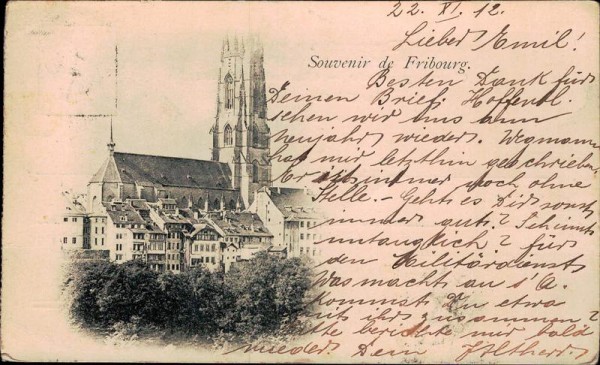 22. XI. 12.
Lieber Emil!
Souvenir de Fribourg.
Besten Dank für
Deinen Brief. Hoffentl.
sehen wir uns am
Neujahr wieder. Wegmann
hat mir letzthin geschrieben
Er ist immer noch ohne
Stelle. - Geht es Dir sonst
immer gut? Scheinst
untauglich? für
den Militärdienst
Was macht
kommst Du etwa
mit ihr zusammen?
Bitte berichte mir bald
wieder. Dein